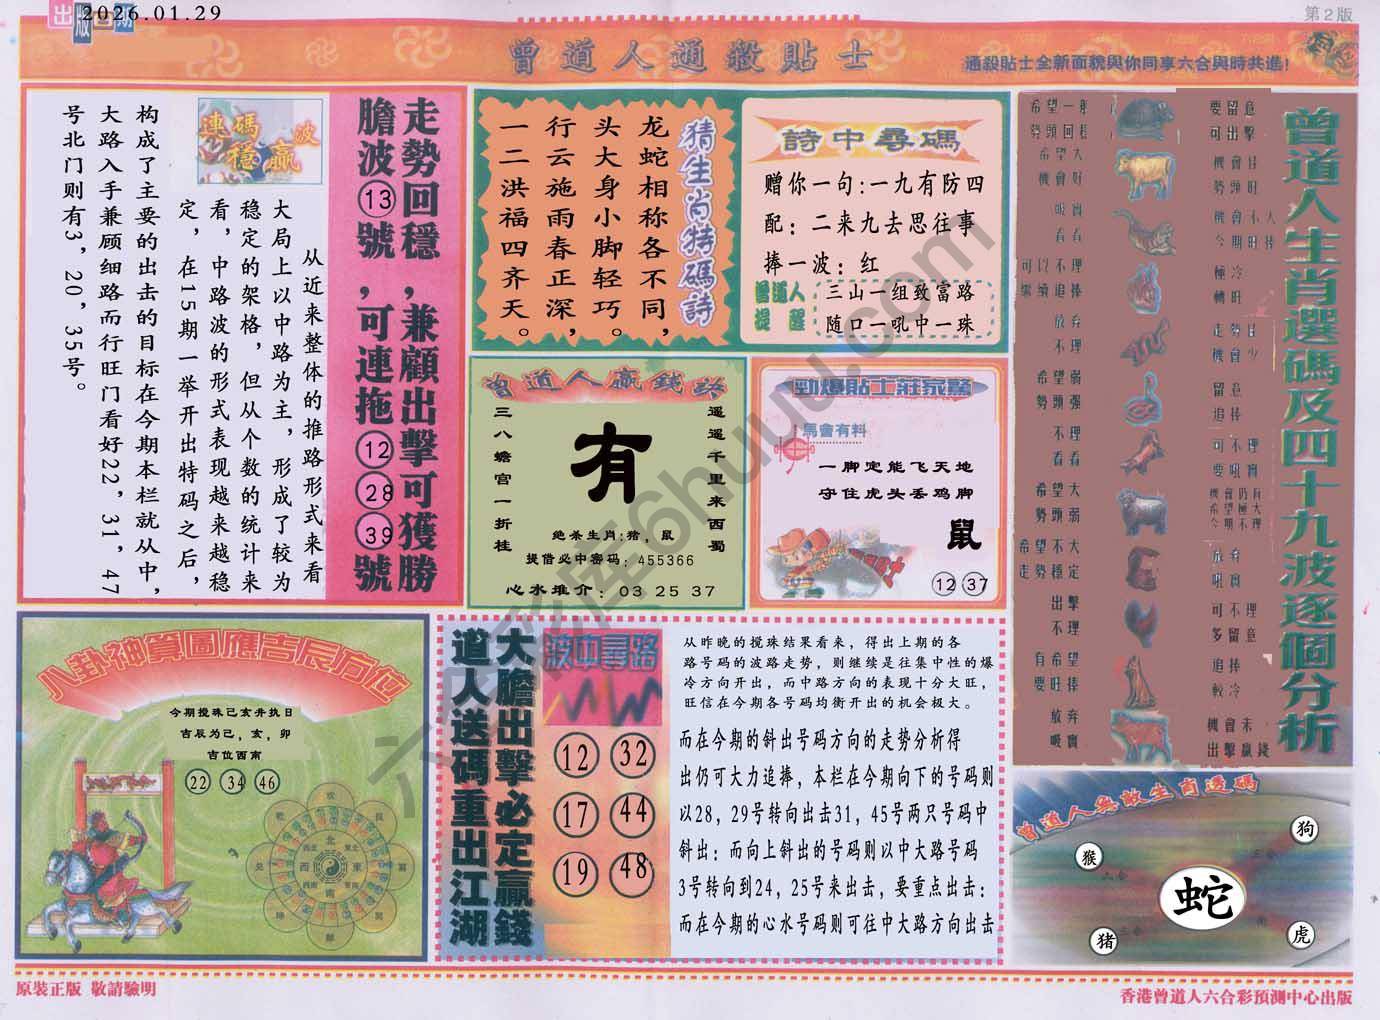 出版日期
2026.01.29
第2版
曾道人通殺貼士
通殺貼士全新面貌與你同享六合與時共進!
走勢回穩,兼顧出擊可獲勝
膽波13號,可連拖12 28 39號
連碼波
穩贏
从近来整体的推路形式来看
大局上以中路为主，形成了较为
稳定的架格，但从个数的统计来
看，中路波的形式表现越来越稳
定，在15期一举开出特码之后，
构成了主要的出击的目标在今期本栏就从中，
大路入手兼顾细路而行旺门看好22，31，47
号北门则有3，20，35号。
猜生肖特碼詩
龙蛇相称各不同，
头大身小脚轻巧。
行云施雨春正深，
一二洪福四齐天。
詩中尋碼
赠你一句:一九有防四
配：二来九去思往事
捧一波：红
曾道人
提醒
三山一组致富路
随口一吼中一珠
曾道人贏錢诀
遥遥千里来西蜀
三八蟾宫一折桂
有
绝杀生肖:猪，鼠
提借必中密码：455366
心水堆介：03 25 37
勁爆貼士莊家驚
馬會有料
一脚定能飞天地
守住虎头丢鸡脚
鼠
12 37
曾道人生肖選碼及四十九波逐個分析
希望一般
勢頭回穩
要留意
可出擊
希望大
機會好
機會佳
勢頭旺
吸實
看看
機會不大
今期旺捧
可以不理
繼續追捧
極冷
轉旺
放弃
不理
走勢佳
機會少
希望弱
勢頭强
留意
追捧
不理
看看
可不理
要吼實
希望大
勢頭弱
機會仍有
希望極大
今期不理
希望不大
走勢穩定
放弃
吼實
出擊
不理
可不理
多留意
有希望
要旺捧
追捧
較冷
放弃
吸實
機會未
出擊贏錢
八卦神算圖應吉辰方位
今期搅珠己亥井执日
吉辰为己，亥，卯
吉位西南
22 34 46
大膽出擊必定贏錢
道人送碼重出江湖
波中尋路
12 32
17 44
19 48
从昨晚的搅珠结果看来，得出上期的各
路号码的波路走势，则继续是往集中性的爆
冷方向开出，而中路方向的表现十分大旺，
旺信在今期各号码均衡开出的机会极大。
而在今期的斜出号码方向的走势分析得
出仍可大力追捧，本栏在今期向下的号码则
以28，29号转向出击31，45号两只号码中
斜出：而向上斜出的号码则以中大路号码
3号转向到24，25号来出击，要重点出击：
而在今期的心水号码则可往中大路方向出击
曾道人無敵生肖透碼
狗
猴
蛇
猪
虎
原裝正版 敬請驗明
香港曾道人六合彩預測中心出版